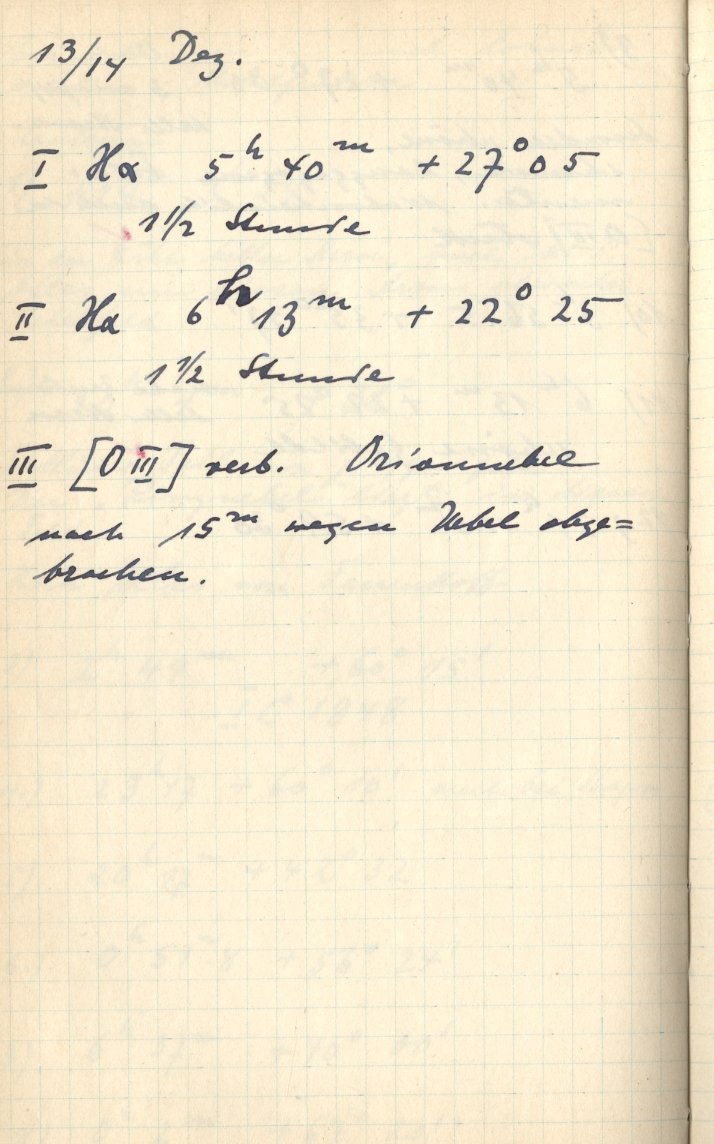 13/14 Dez.
I Hα 5h 40m + 27° 05
1 1/2 Stunde
II Hα 6h 13m + 22° 25
1 1/2 Stunde
III [O III] verb. Orionnebel
nach 15m wegen Nebel abge=
brochen.